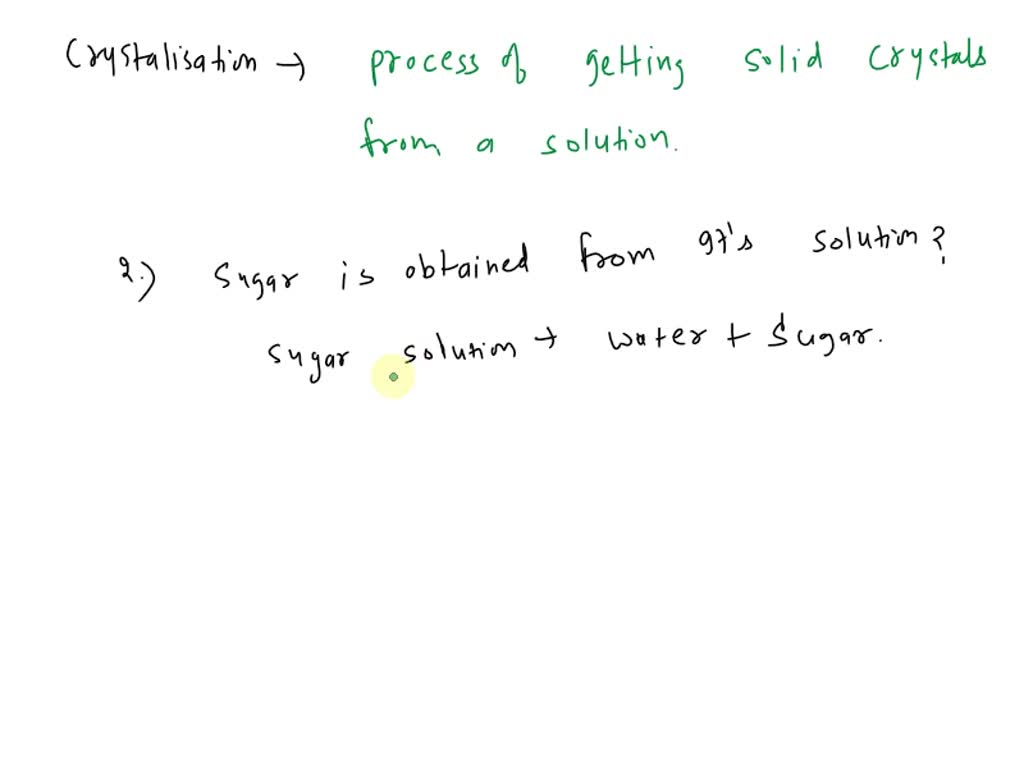 Crystalisation → process of getting solid crystals
from a solution.
2.) Sugar is obtained from It's solution?
sugar solution → water + Sugar.